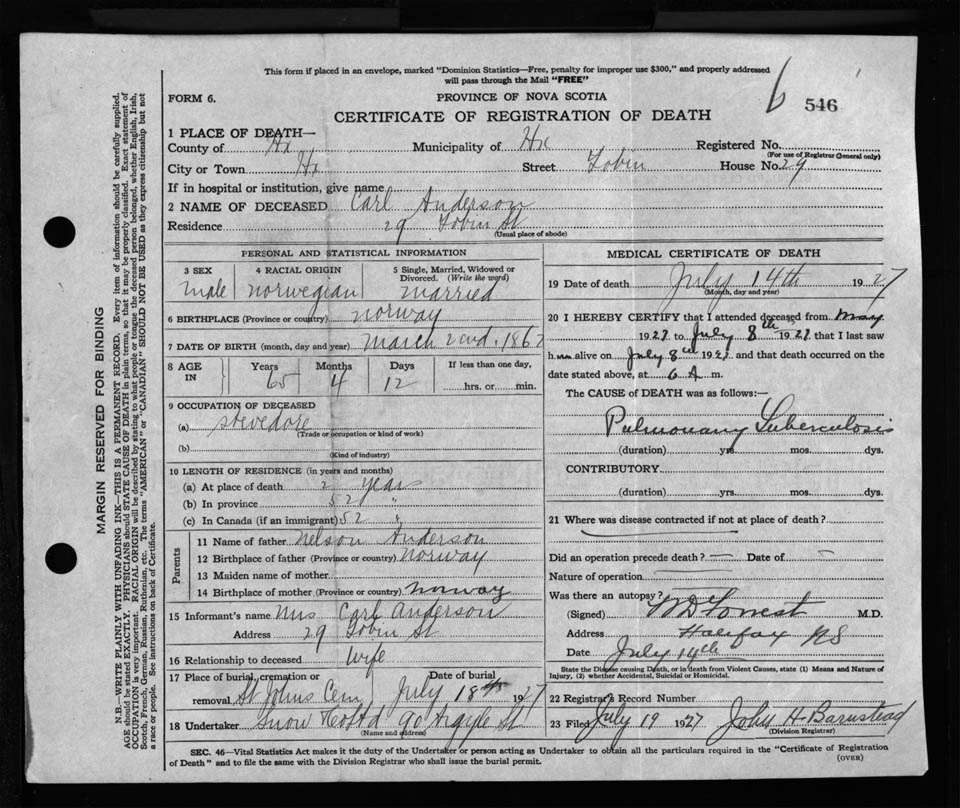 This form if placed in an envelope, marked "Dominion Statistics—Free, penalty for improper use $300," and properly addressed
will pass through the Mail "FREE"
6 546
FORM 6. PROVINCE OF NOVA SCOTIA
CERTIFICATE OF REGISTRATION OF DEATH
1 PLACE OF DEATH—
County of Hx Municipality of Hx Registered No.
(For use of Registrar General only)
City or Town Hx Street Tobin House No. 29
If in hospital or institution, give name
2 NAME OF DECEASED Carl Anderson
Residence 29 Tobin St
(Usual place of abode)
PERSONAL AND STATISTICAL INFORMATION
3 SEX 4 RACIAL ORIGIN 5 Single, Married, Widowed or Divorced. (Write the word)
Male Norwegian Married
6 BIRTHPLACE (Province or country) Norway
7 DATE OF BIRTH (month, day and year) March 2nd. 1862
8 AGE IN Years Months Days If less than one day,
65 4 12 hrs. or min.
9 OCCUPATION OF DECEASED
(a) Stevedore
(Trade or occupation or kind of work)
(b)
(Kind of industry)
10 LENGTH OF RESIDENCE (in years and months)
(a) At place of death 2 years
(b) In province 52 "
(c) In Canada (if an immigrant) 52 "
Parents
11 Name of father Nelson Anderson
12 Birthplace of father (Province or country) Norway
13 Maiden name of mother
14 Birthplace of mother (Province or country) Norway
15 Informant's name Mrs Carl Anderson
Address 29 Tobin St
16 Relationship to deceased Wife
17 Place of burial, cremation or removal St Johns Cem Date of burial July 18th 1927
18 Undertaker Snow & Co Ltd 90 Argyle St
(Name and address)
MEDICAL CERTIFICATE OF DEATH
19 Date of death July 14th 1927
(Month, day and year)
20 I HEREBY CERTIFY that I attended deceased from May
1927 to July 8th 1927 that I last saw
him alive on July 8th 1927 and that death occurred on the
date stated above, at 6 A m.
The CAUSE OF DEATH was as follows:—
Pulmonary Tuberculosis
(duration) yrs. mos. dys.
CONTRIBUTORY
(duration) yrs. mos. dys.
21 Where was disease contracted if not at place of death?
Did an operation precede death? — Date of —
Nature of operation
Was there an autopsy?
(Signed) M.D.
Address Halifax NS
Date July 14th
State the Disease causing Death, or in death from Violent Causes, state (1) Means and Nature of
Injury, (2) whether Accidental, Suicidal or Homicidal.
22 Registrar's Record Number
23 Filed July 19 1927 John H Barnstead
(Division Registrar)
SEC. 46—Vital Statistics Act makes it the duty of the Undertaker or person acting as Undertaker to obtain all the particulars required in the "Certificate of Registration
of Death" and to file the same with the Division Registrar who shall issue the burial permit.
(OVER)
MARGIN RESERVED FOR BINDING
N.B.—WRITE PLAINLY WITH UNFADING INK—THIS IS A PERMANENT RECORD. Every item of information should be carefully supplied.
AGE should be stated EXACTLY. PHYSICIANS should STATE CAUSE OF DEATH in plain terms, so that it may be properly classified. Exact statement of
OCCUPATION is very important. RACIAL ORIGIN will be described by stating to what people or tongue the deceased person belonged, whether English, Irish,
Scotch, French, German, Russian, Ruthenian, etc. The terms "AMERICAN" or "CANADIAN" SHOULD NOT BE USED as they express citizenship but not
a race or people. See instructions on back of Certificate.